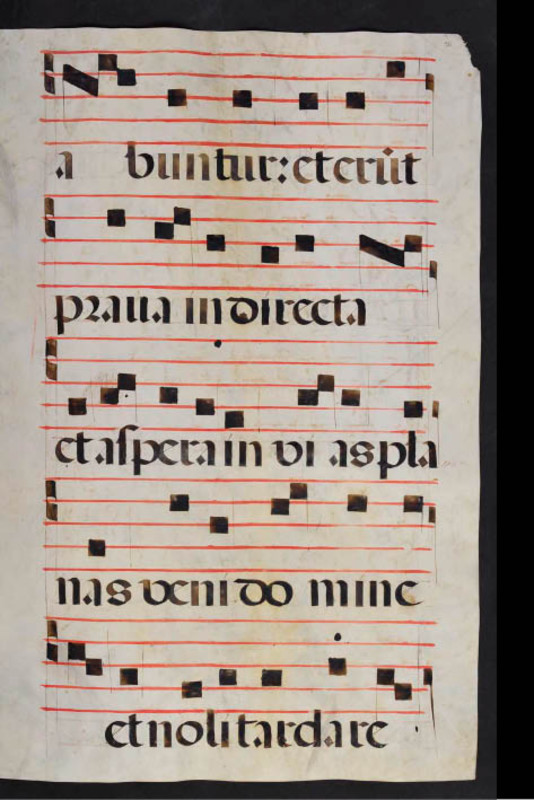 a buntur: et erũt
praua in directa
et aspera in vi as pla
nas veni do mine
et noli tardare